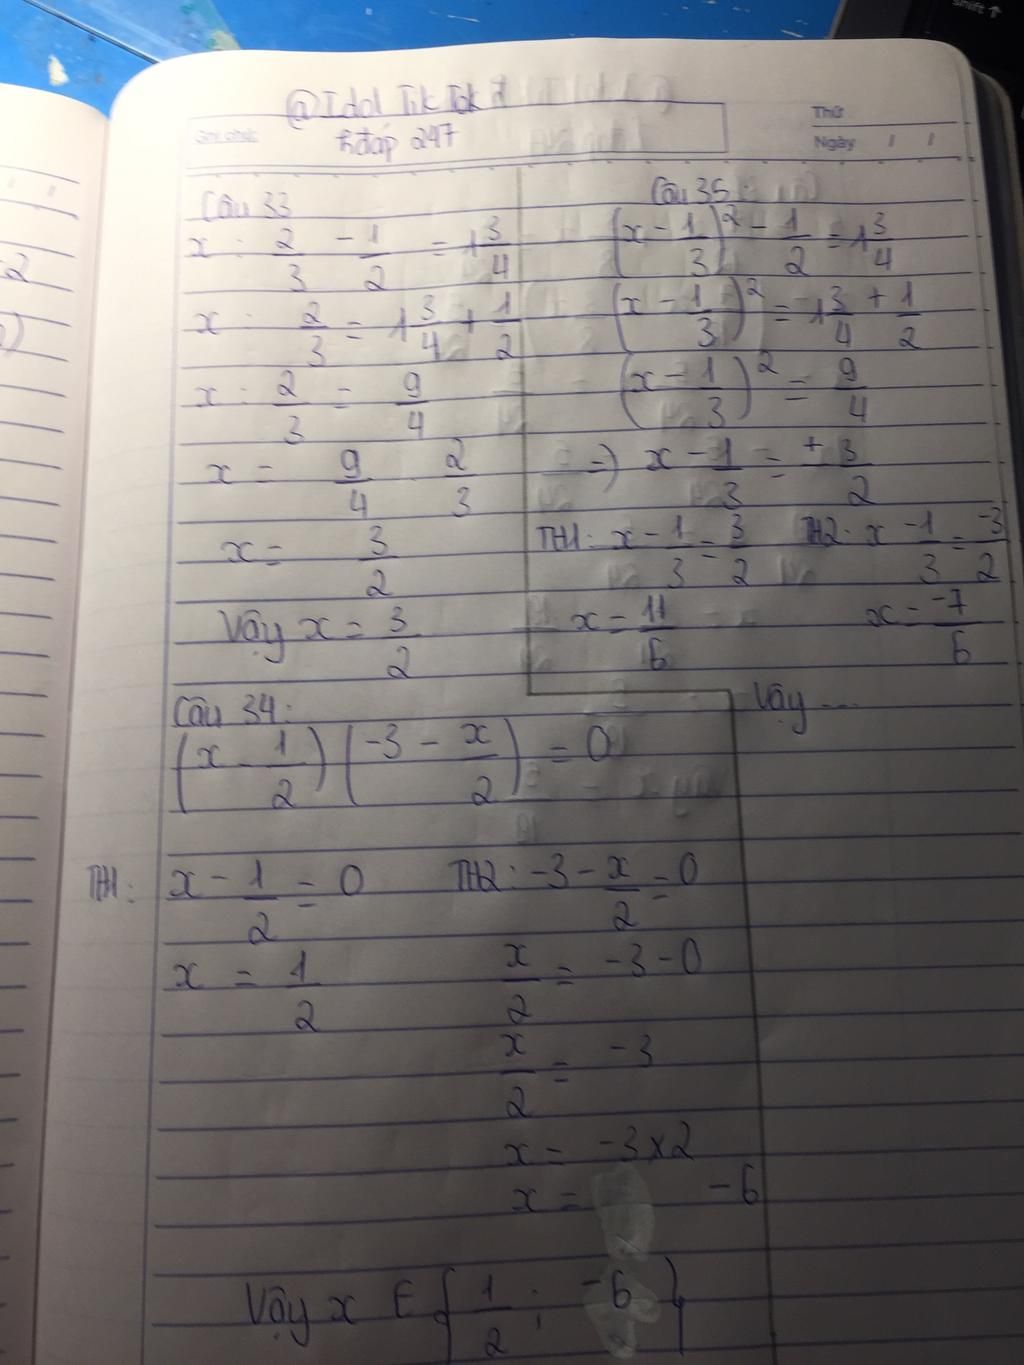 shift ↑
@Idol Tik Tok
hđáp 247
Ghi chú:
Thứ
Ngày / /
Câu 33
x : 2/3 - 1/2 = 1 3/4
x : 2/3 = 1 3/4 + 1/2
x : 2/3 = 9/4
x = 9/4 . 2/3
x = 3/2
Vậy x = 3/2
Câu 35:
(x - 1/3)² - 1/2 = 1 3/4
(x - 1/3)² = 1 3/4 + 1/2
(x - 1/3)² = 9/4
=) x - 1/3 = ± 3/2
TH1: x - 1/3 = 3/2 TH2: x - 1/3 = -3/2
x = 11/6 x = -7/6
Vậy ...
Câu 34:
(x - 1/2) (-3 - x/2) = 0
TH1: x - 1/2 = 0 TH2: -3 - x/2 = 0
x = 1/2 x/2 = -3 - 0
x/2 = -3
x = -3 x 2
x = -6
Vậy x E { 1/2 ; -6 }